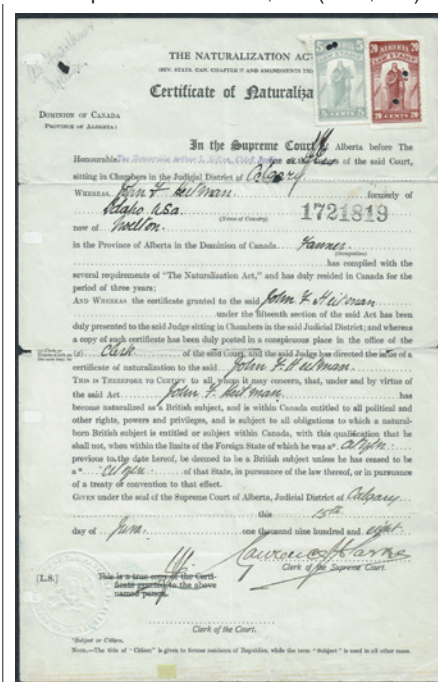 THE NATURALIZATION AC
(REV. STATS. CAN. CHAPTER 77 AND AMENDMENTS THE
Certificate of Naturaliza
5 ALBERTA 5
LAW STAMP
5 CENTS 5
20 ALBERTA 20
LAW STAMP
20 CENTS 20
DOMINION OF CANADA
PROVINCE OF ALBERTA:
In the Supreme Court of Alberta before The
Honourable The Honorable Arthur L. Sifton, Chief Justice of the said Court,
sitting in Chambers in the Judicial District of Calgary
WHEREAS, John F. Heilman. formerly of
Idaho. U.S.A. (Name of Country) 1721819
now of
in the Province of Alberta in the Dominion of Canada Farmer
(Occupation)
has complied with the
several requirements of "The Naturalization Act," and has duly resided in Canada for the
period of three years;
AND WHEREAS the certificate granted to the said John F. Heilman
under the fifteenth section of the said Act has been
duly presented to the said Judge sitting in Chambers in the said Judicial District; and whereas
a copy of such certificate has been duly posted in a conspicuous place in the office of the
Clerk of the said Court, and the said Judge has directed the issue of a
certificate of naturalization to the said John F. Heilman.
THIS IS THEREFORE TO CERTIFY to all whom it may concern, that, under and by virtue of
the said Act John F. Heilman. has
become naturalized as a British subject, and is within Canada entitled to all political and
other rights, powers and privileges, and is subject to all obligations to which a natural-
born British subject is entitled or subject within Canada, with this qualification that he
shall not, when within the limits of the Foreign State of which he was a* citizen
previous to the date hereof, be deemed to be a British subject unless he has ceased to be
a* citizen of that State, in pursuance of the law thereof, or in pursuance
of a treaty of convention to that effect.
GIVEN under the seal of the Supreme Court of Alberta, Judicial District of Calgary
this 15th
day of June. one thousand nine hundred and eight
Clerk of the Supreme Court.
[L.S.] This is a true copy of the Certi-
ficate granted to the above
named person.
Clerk of the Court.
*Subject or Citizen.
NOTE.—The title of "Citizen" is given to former residents of Republics, while the term "Subject" is used in all other cases.